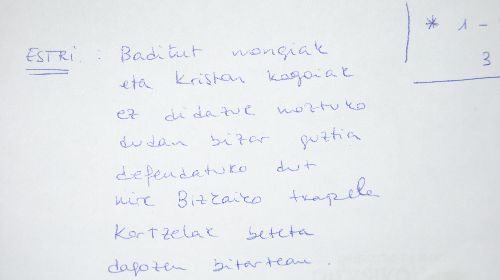 ESTRI : Baditut mongiak * 1 -
eta kristan kagoiak 3
ez didazue moztuko
dudan bizar guztia
defendatuko dut
nire Bizkaiko txapela
kartzelak beteta
dagozen bitartean .